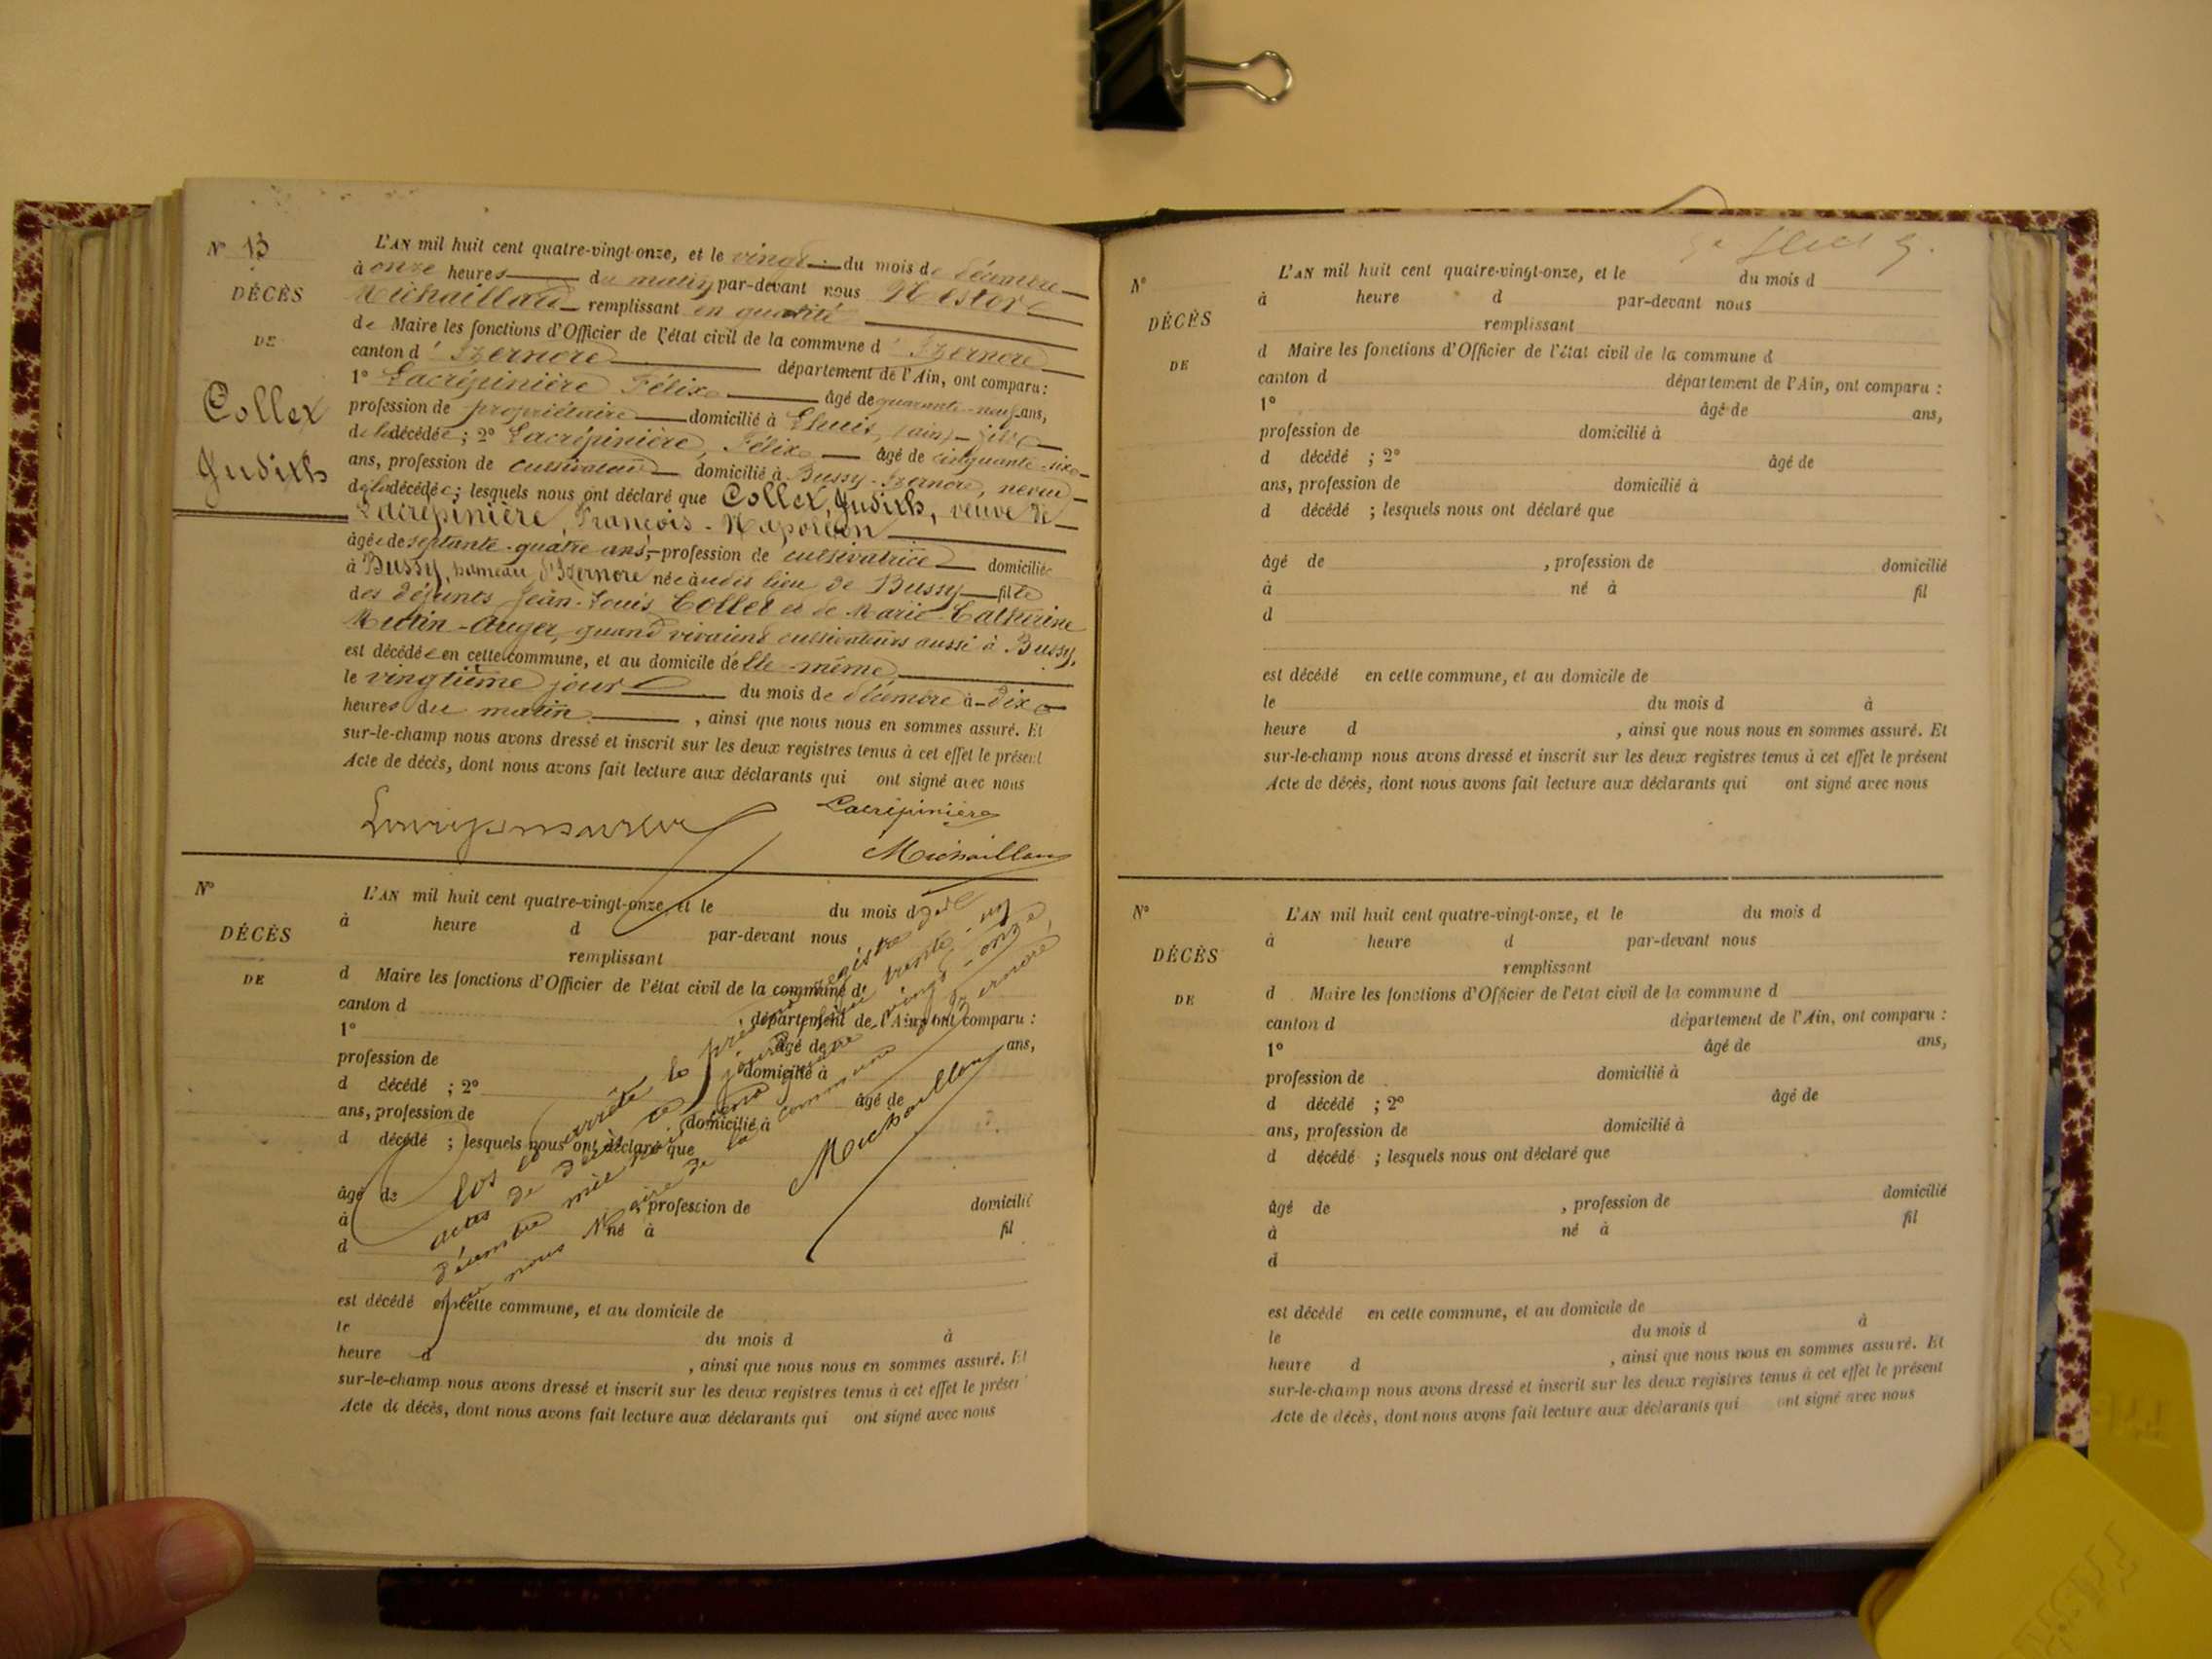 N° 13
DÉCÈS
DE
Collet
Judith
L'AN mil huit cent quatre-vingt-onze, et le vingt du mois de décembre
à onze heures du matin par-devant nous Nestor
Michaillard remplissant en qualité
de Maire les fonctions d'Officier de l'état civil de la commune d'Izernore
canton d'Izernore département de l'Ain, ont comparu :
1° Lacrépinière Félix âgé de quarante-neuf ans,
profession de propriétaire domicilié à Lhuis, (ain)
de la décédée ; 2° Lacrépinière, Félix âgé de cinquante-six
ans, profession de cultivateur domicilié à Bussy-Izernore, neveu
de la décédée ; lesquels nous ont déclaré que Collet, Judith, veuve de
Lacrépinière, François-Napoléon
âgée de septante-quatre ans, profession de cultivatrice domiciliée
à Bussy, hameau d'Izernore née audit lieu de Bussy fille
des défunts Jean-Louis Collet et de Marie-Catherine
Mutin-Auger, quand vivaient cultivateurs aussi à Bussy,
est décédée en cette commune, et au domicile d'elle-même
le vingtième jour du mois de décembre à dix
heures du matin , ainsi que nous nous en sommes assuré. Et
sur-le-champ nous avons dressé et inscrit sur les deux registres tenus à cet effet le présent
Acte de décès, dont nous avons fait lecture aux déclarants qui ont signé avec nous
Lacrépinière
Michaillard
N°
DÉCÈS
DE
L'AN mil huit cent quatre-vingt-onze, et le du mois d
à heure d par-devant nous
remplissant
d Maire les fonctions d'Officier de l'état civil de la commune d
canton d département de l'Ain, ont comparu :
1° âgé de ans,
profession de domicilié à
d décédé ; 2° âgé de
ans, profession de domicilié à
d décédé ; lesquels nous ont déclaré que
âgé de , profession de domicilié
à né à fil
d
est décédé en cette commune, et au domicile de
le du mois d à
heure d , ainsi que nous nous en sommes assuré. Et
sur-le-champ nous avons dressé et inscrit sur les deux registres tenus à cet effet le présent
Acte de décès, dont nous avons fait lecture aux déclarants qui ont signé avec nous
Clos et arrêté le présent registre des
actes de décès ce jourd'hui trente-un
décembre mil huit cent quatre-vingt-onze,
par nous Maire de la commune d'Izernore,
Michaillard
N°
DÉCÈS
DE
L'AN mil huit cent quatre-vingt-onze, et le du mois d
à heure d par-devant nous
remplissant
d Maire les fonctions d'Officier de l'état civil de la commune d
canton d département de l'Ain, ont comparu :
1° âgé de ans,
profession de domicilié à
d décédé ; 2° âgé de
ans, profession de domicilié à
d décédé ; lesquels nous ont déclaré que
âgé de , profession de domicilié
à né à fil
d
est décédé en cette commune, et au domicile de
le du mois d à
heure d , ainsi que nous nous en sommes assuré. Et
sur-le-champ nous avons dressé et inscrit sur les deux registres tenus à cet effet le présent
Acte de décès, dont nous avons fait lecture aux déclarants qui ont signé avec nous
N°
DÉCÈS
DE
L'AN mil huit cent quatre-vingt-onze, et le du mois d
à heure d par-devant nous
remplissant
d Maire les fonctions d'Officier de l'état civil de la commune d
canton d département de l'Ain, ont comparu :
1° âgé de ans,
profession de domicilié à
d décédé ; 2° âgé de
ans, profession de domicilié à
d décédé ; lesquels nous ont déclaré que
âgé de , profession de domicilié
à né à fil
d
est décédé en cette commune, et au domicile de
le du mois d à
heure d , ainsi que nous nous en sommes assuré. Et
sur-le-champ nous avons dressé et inscrit sur les deux registres tenus à cet effet le présent
Acte de décès, dont nous avons fait lecture aux déclarants qui ont signé avec nous